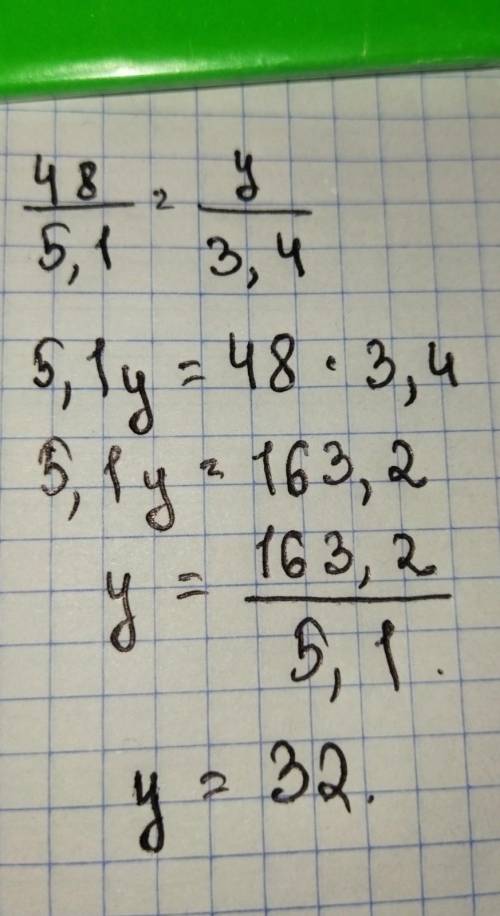 48/5,1 = y/3,4
5,1y = 48 · 3,4
5,1y = 163,2
y = 163,2/5,1.
y = 32.